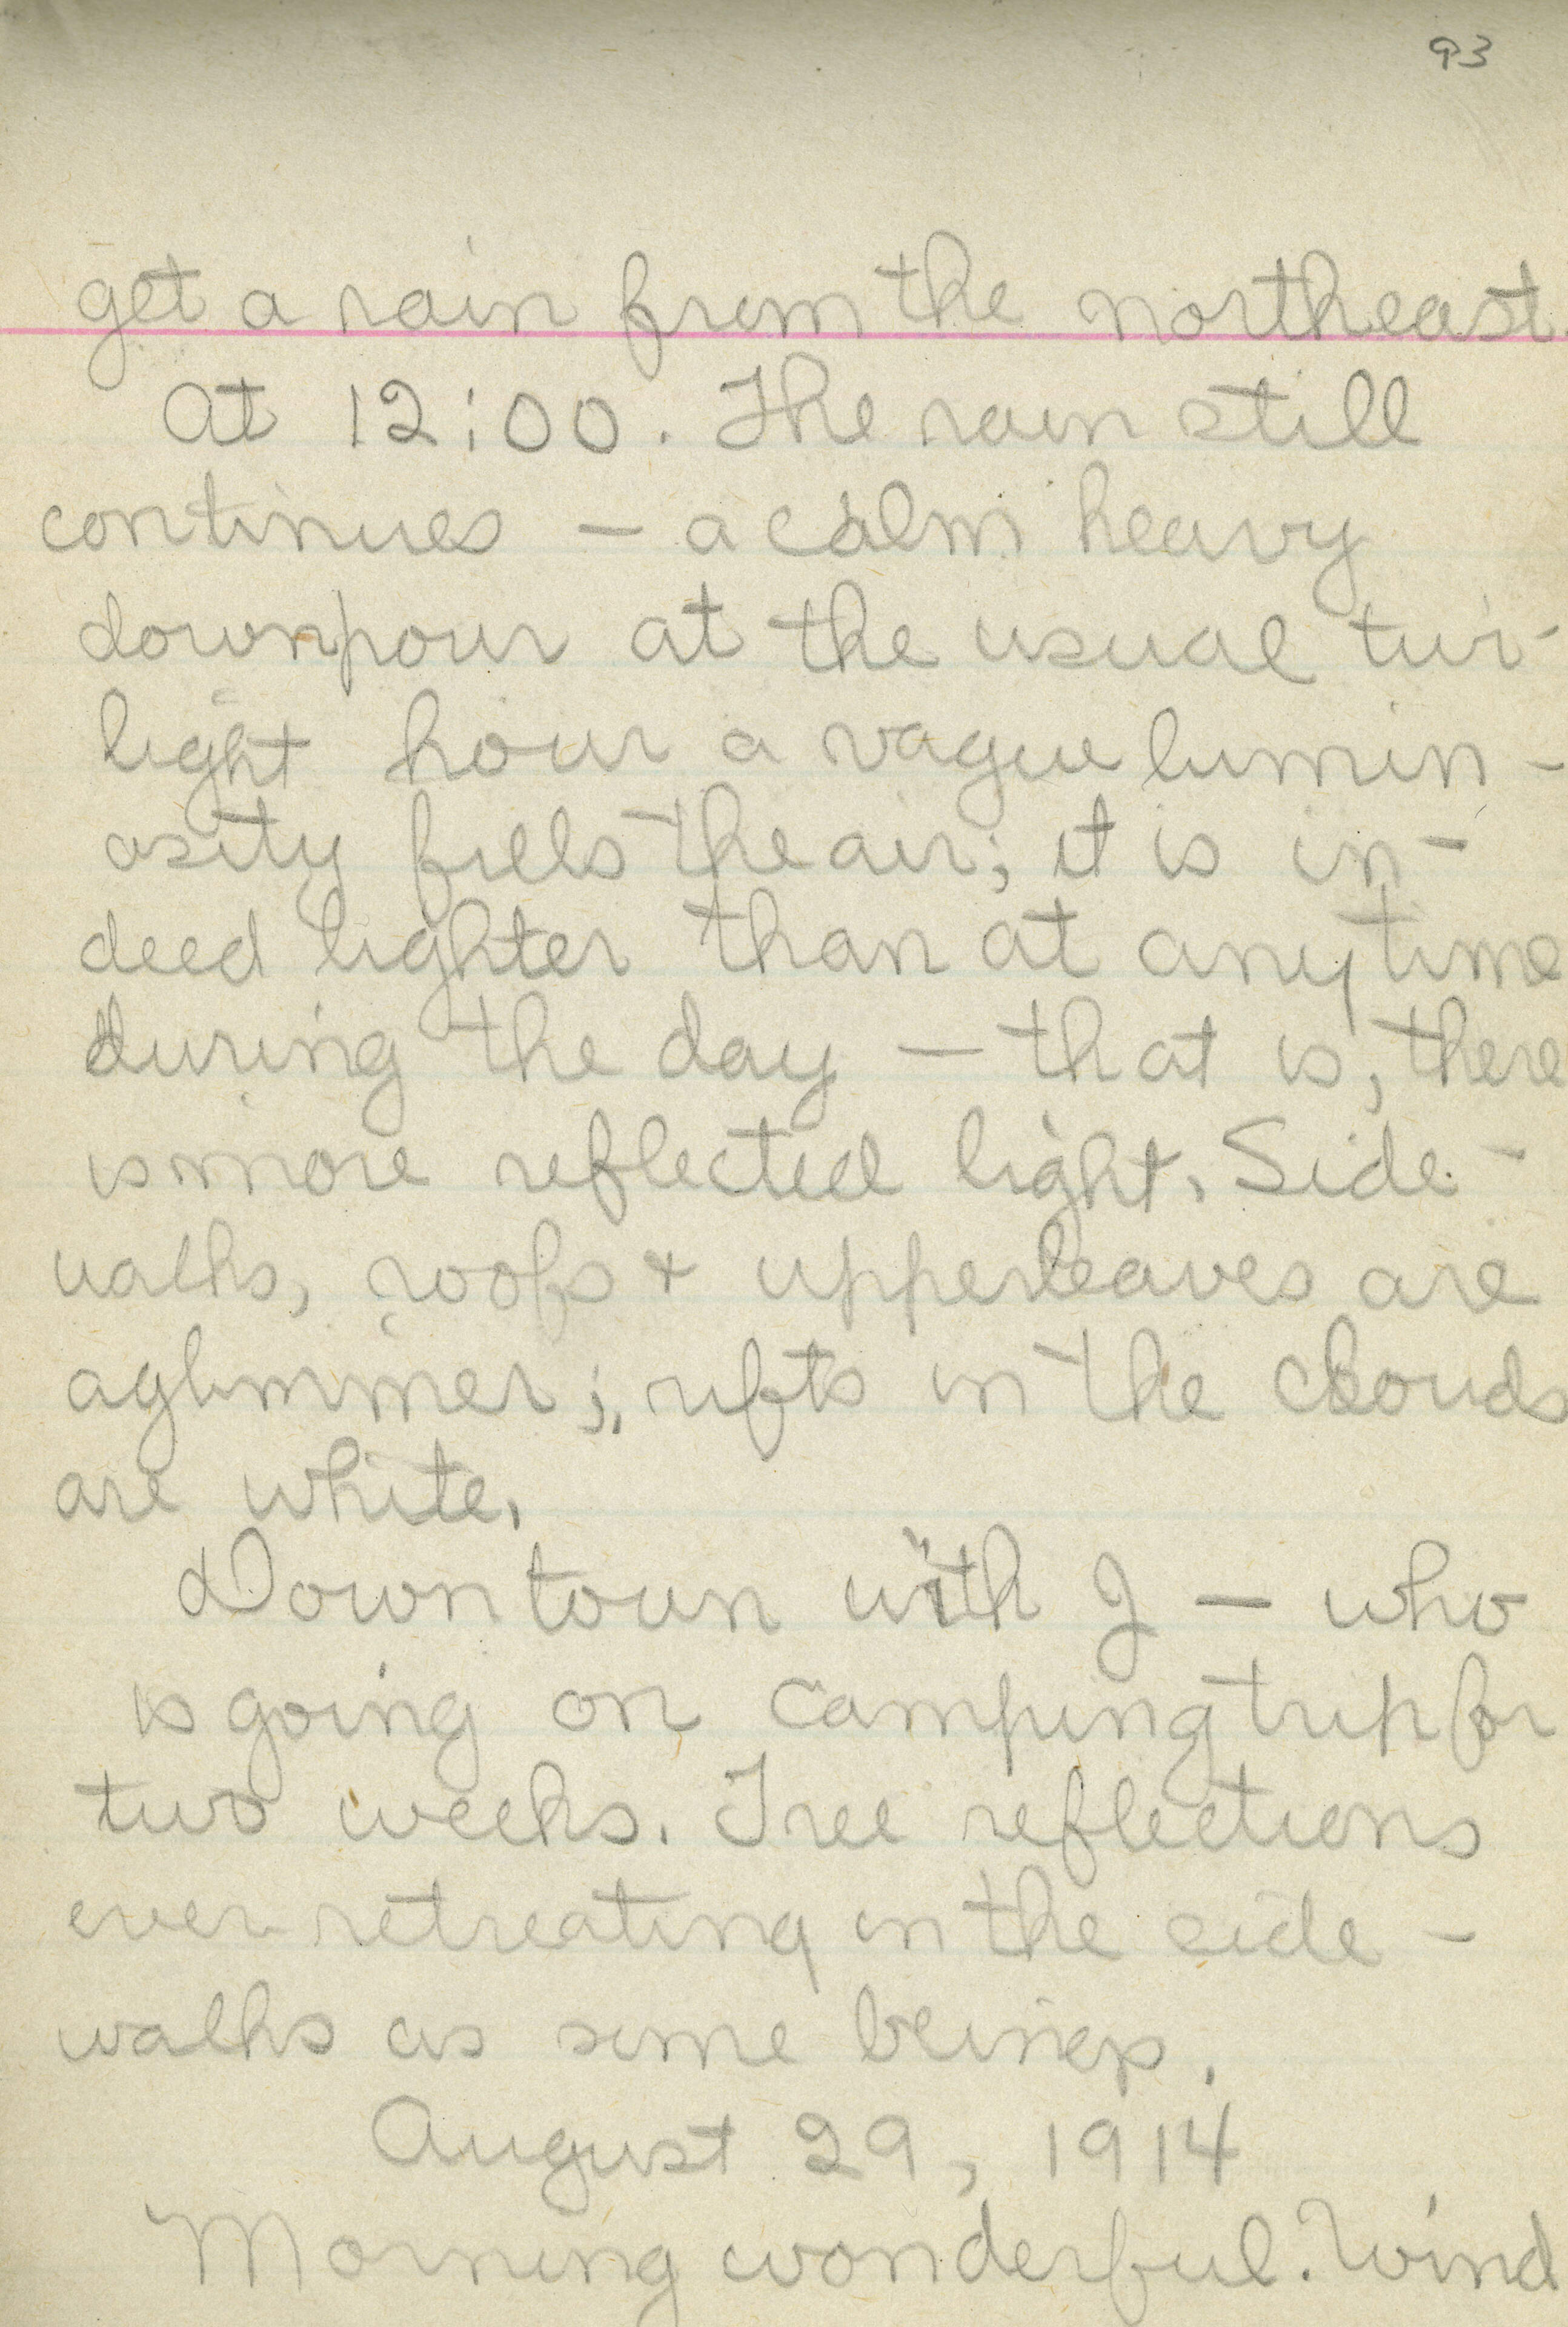 93
get a rain from the northeast
At 12:00. The rain still
continues — a calm heavy
downpour at the usual twi-
light hour a vague lumin-
osity fills the air; it is in-
deed lighter than at anytime
during the day — that is, there
is more reflected light. Side-
walks, roofs + upperleaves are
aglimmer; rifts in the clouds
are white.
Downtown with J — who
is going on camping trip for
two weeks. Tree reflections
ever retreating in the side-
walks as some
August 29, 1914
Morning wonderful. Wind